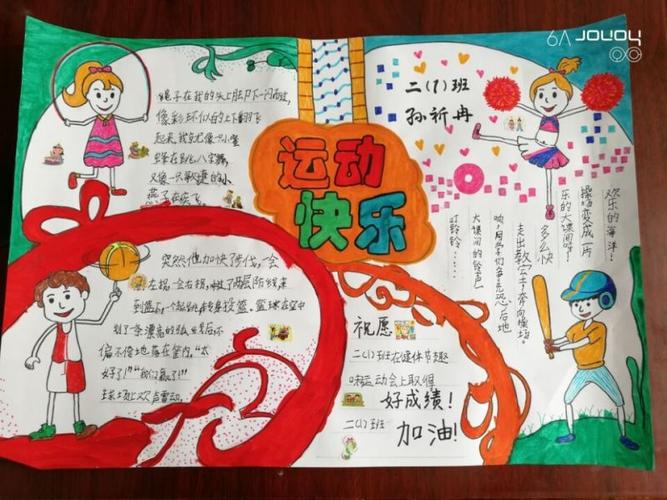 绳子在我的头上脚下一闪而过,
像彩环似的上下翻飞
起来,我就像一只小蜜
蜂在跳八字舞,
又像一只敏捷的小
燕子在疾飞。
运动
快乐
二(1)班
孙祈冉
叮铃铃……
大课间的铃声
响,同学们争先恐后地
走出教室,奔向操场。
多么快
乐的大课间呀!
操场变成一片
欢乐的海洋!
突然他加快了步伐,一会
左拐一会右拐,
到篮下一个起跳,转身投篮,篮球在空中
划了一条漂亮的弧线,然后不
偏不倚地落在筐内。"太
好了!""我们赢了!"
球场上欢声雷动。
祝愿
二(1)班在健体节趣
味运动会上取得
好成绩!
二(1)班
加油!
6A honor